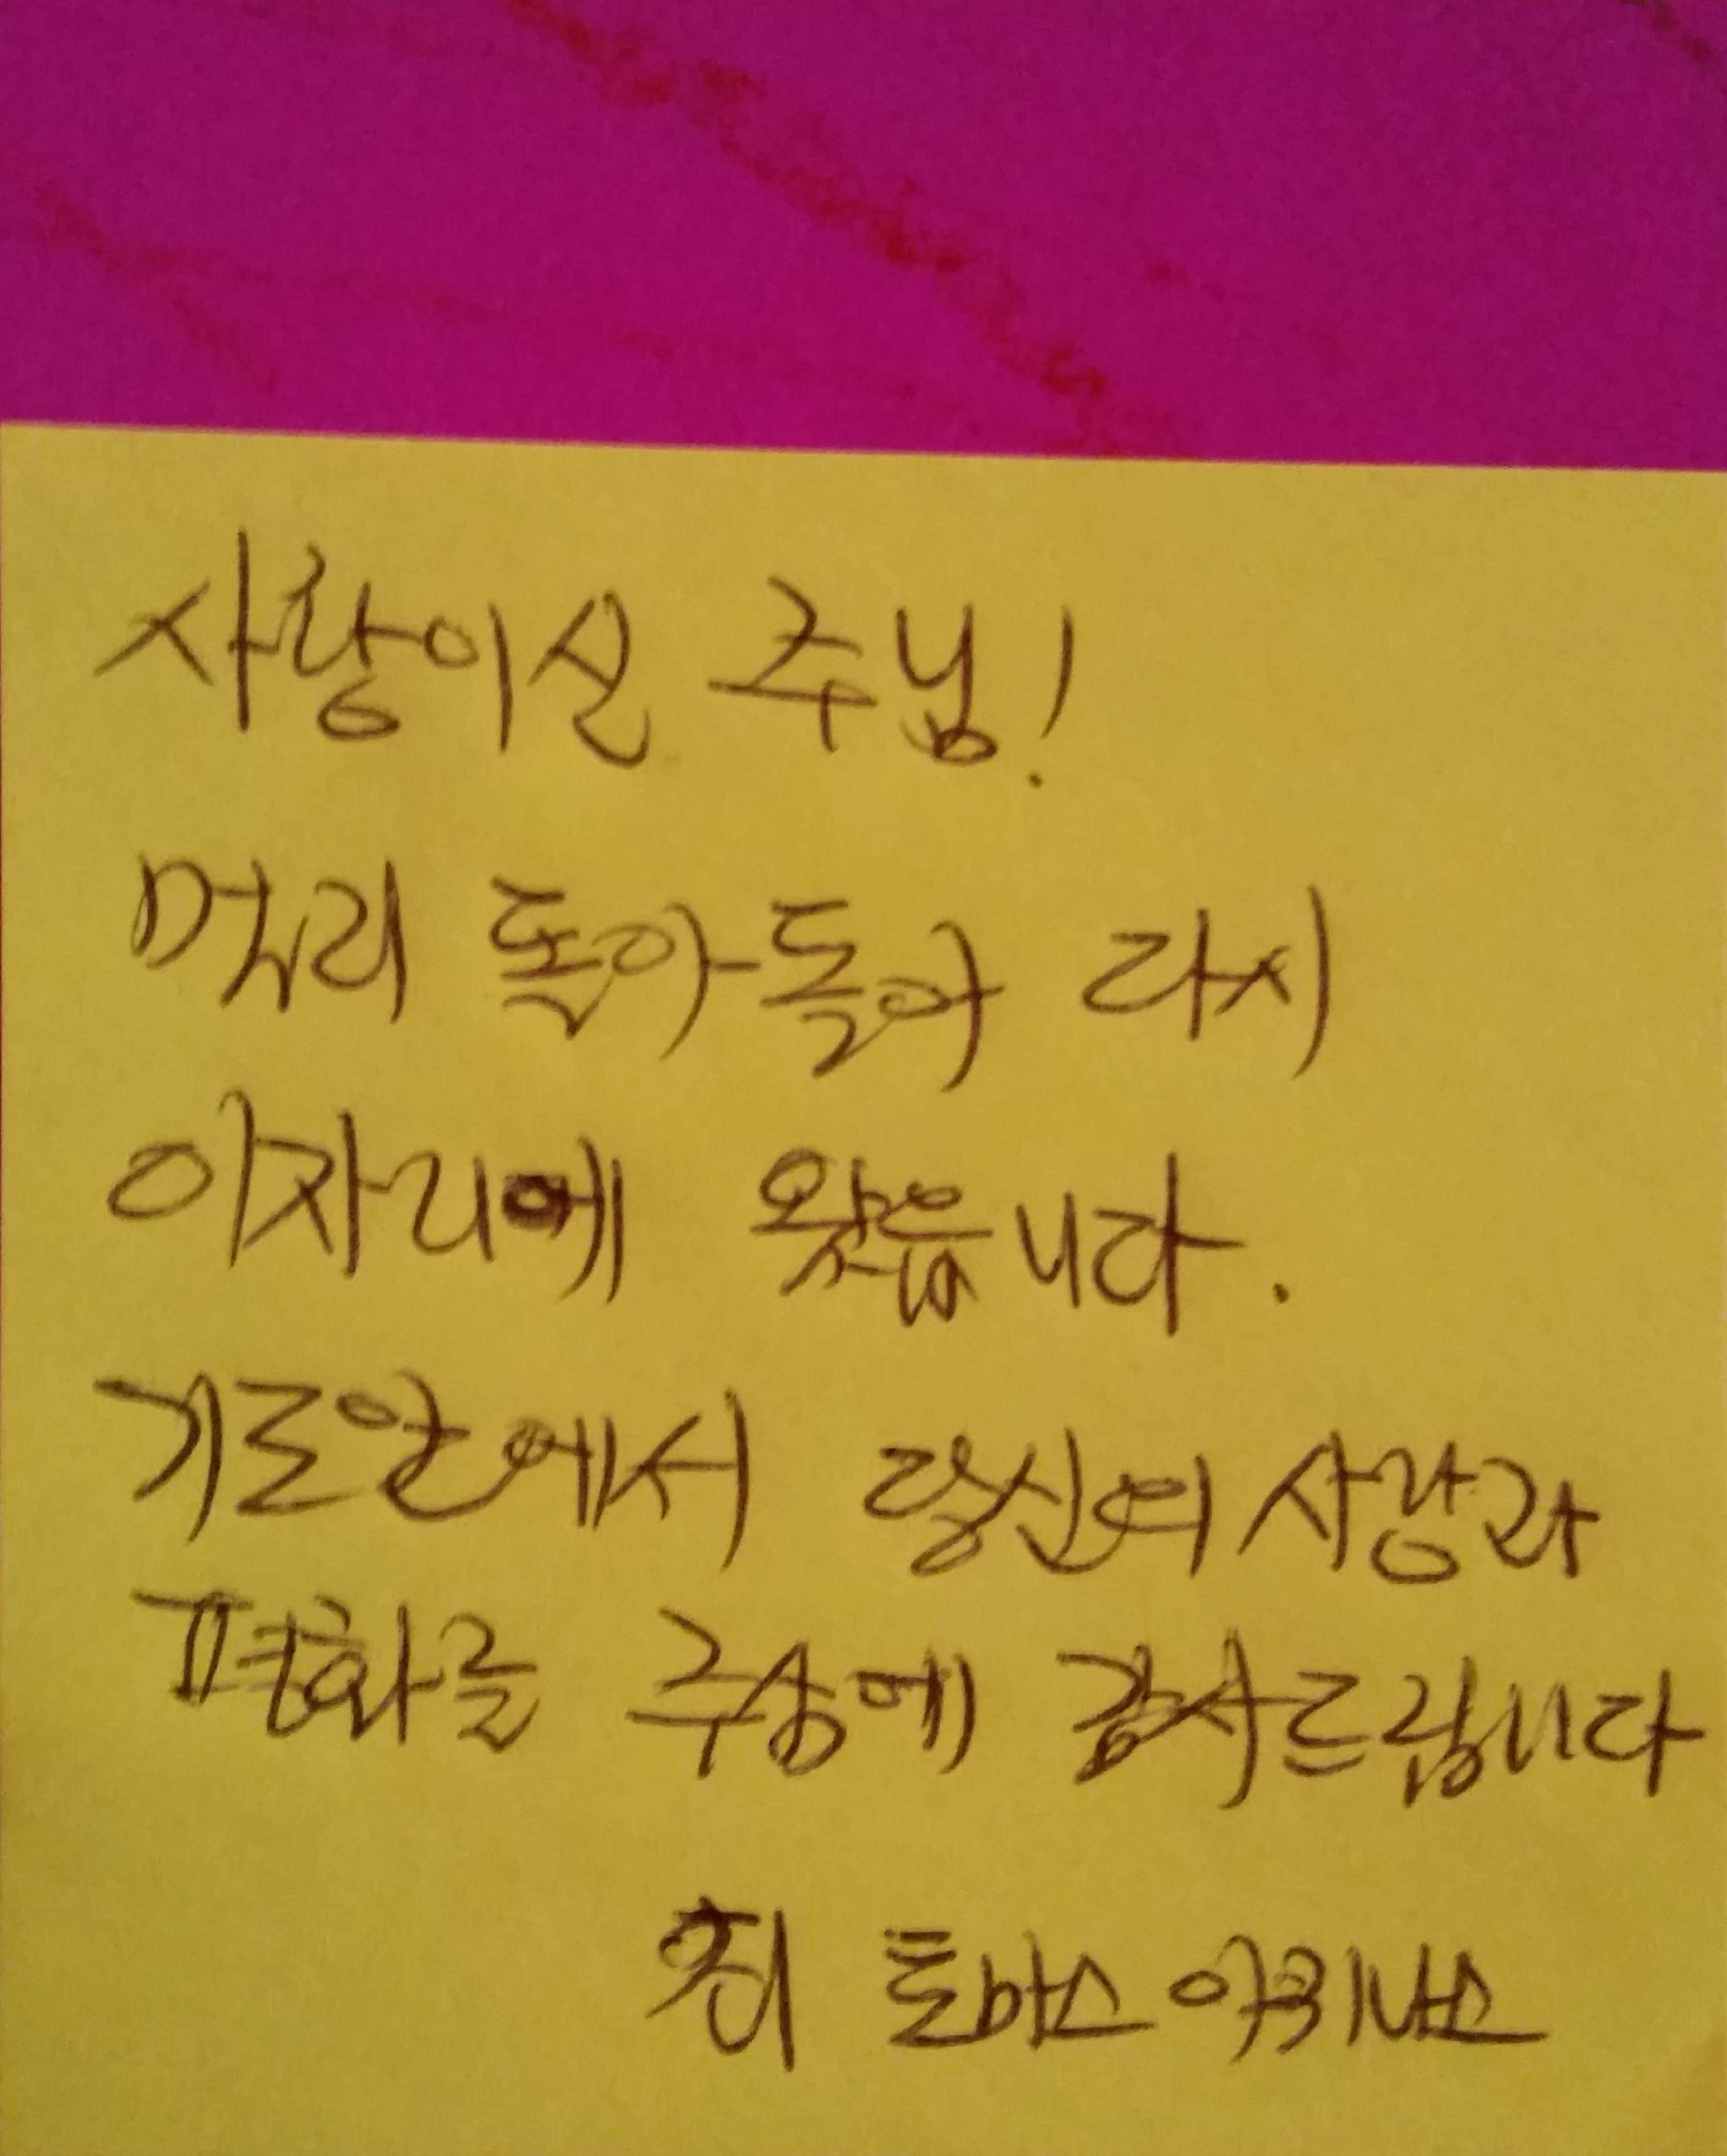 사랑이신 주님!
멀리 돌아-돌아 다시
이자리에 왔습니다.
기도안에서 당신의 사랑과
평화를 주심에 감사드립니다
최 토마스 아퀴나스